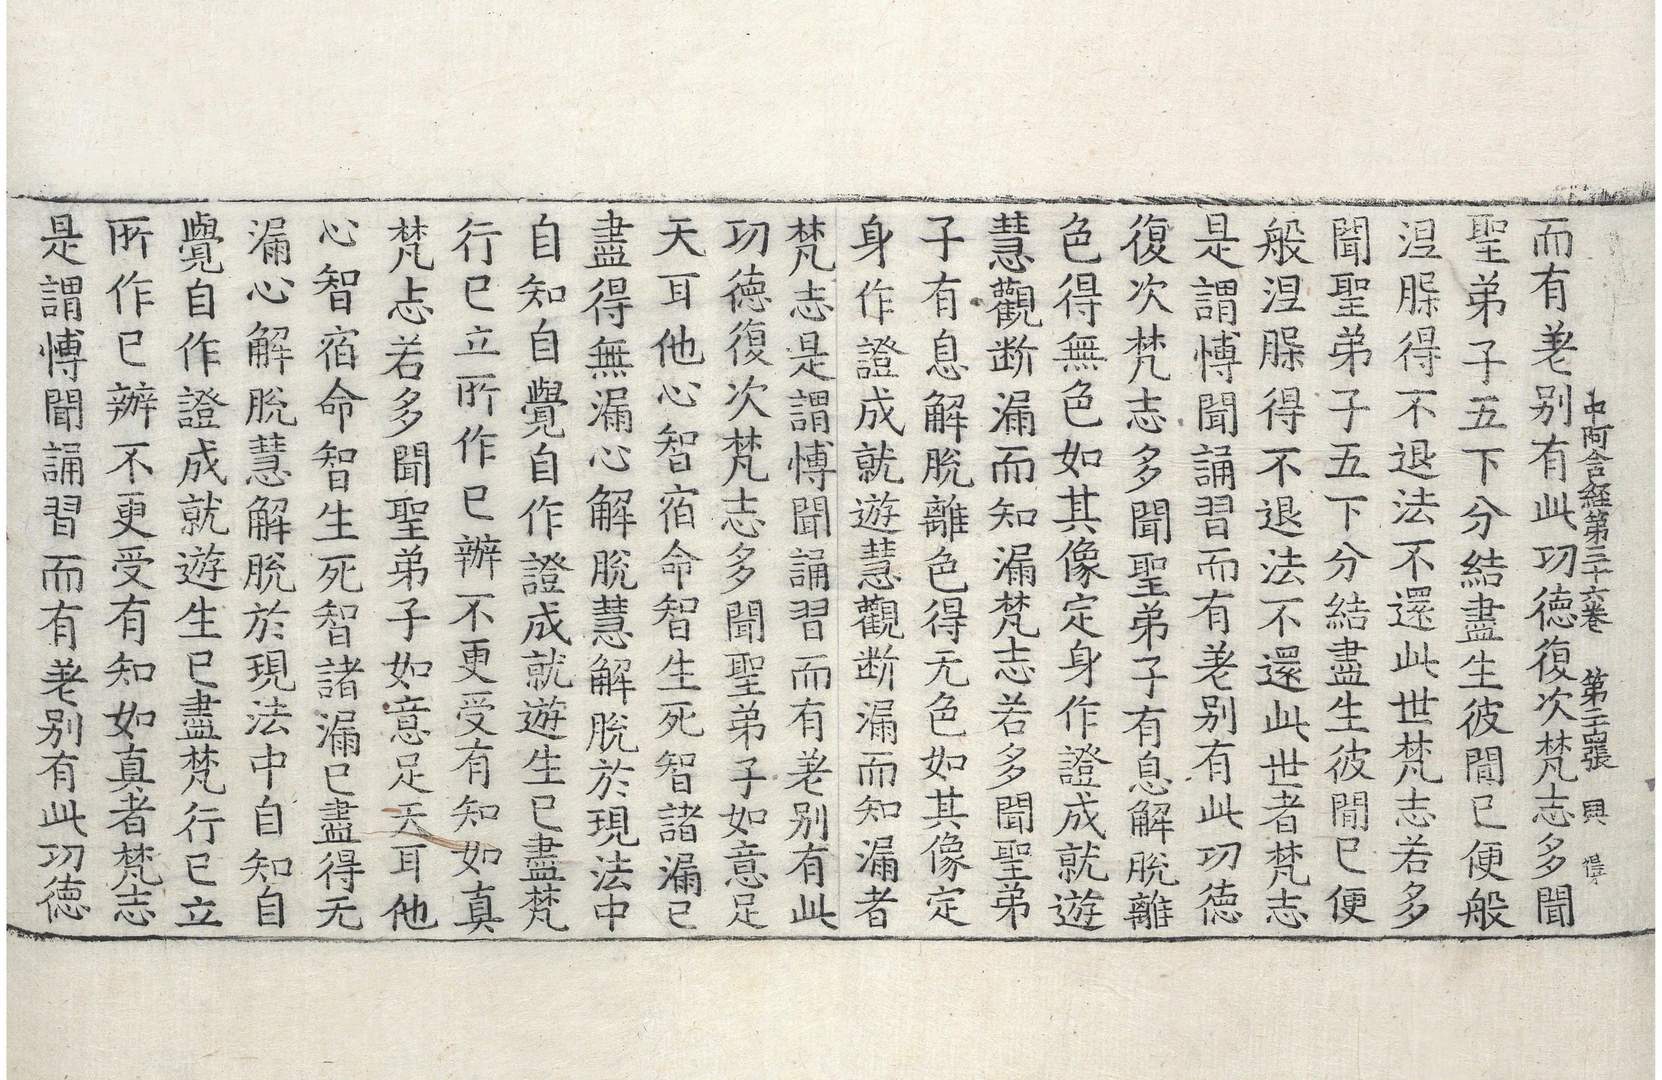 中阿含経第三十六卷 第二十四張 興
而有差别有此功德復次梵志多聞
聖弟子五下分結盡生彼間已便般
涅槃得不退法不還此世梵志若多
聞聖弟子五下分結盡生彼間已便
般涅槃得不退法不還此世者梵志
是謂博聞誦習而有差别有此功德
復次梵志多聞聖弟子有息解脫離
色得無色如其像定身作證成就遊
慧觀断漏而知漏梵志若多聞聖弟
子有息解脫離色得无色如其像定
身作證成就遊慧觀断漏而知漏者
梵志是謂博聞誦習而有差别有此
功德復次梵志多聞聖弟子如意足
天耳他心智宿命智生死智諸漏已
盡得無漏心解脫慧解脫於現法中
自知自覺自作證成就遊生已盡梵
行已立所作已辦不更受有知如真
梵志若多聞聖弟子如意足天耳他
心智宿命智生死智諸漏已盡得无
漏心解脫慧解脫於現法中自知自
覺自作證成就遊生已盡梵行已立
所作已辦不更受有知如真者梵志
是謂博聞誦習而有差别有此功德